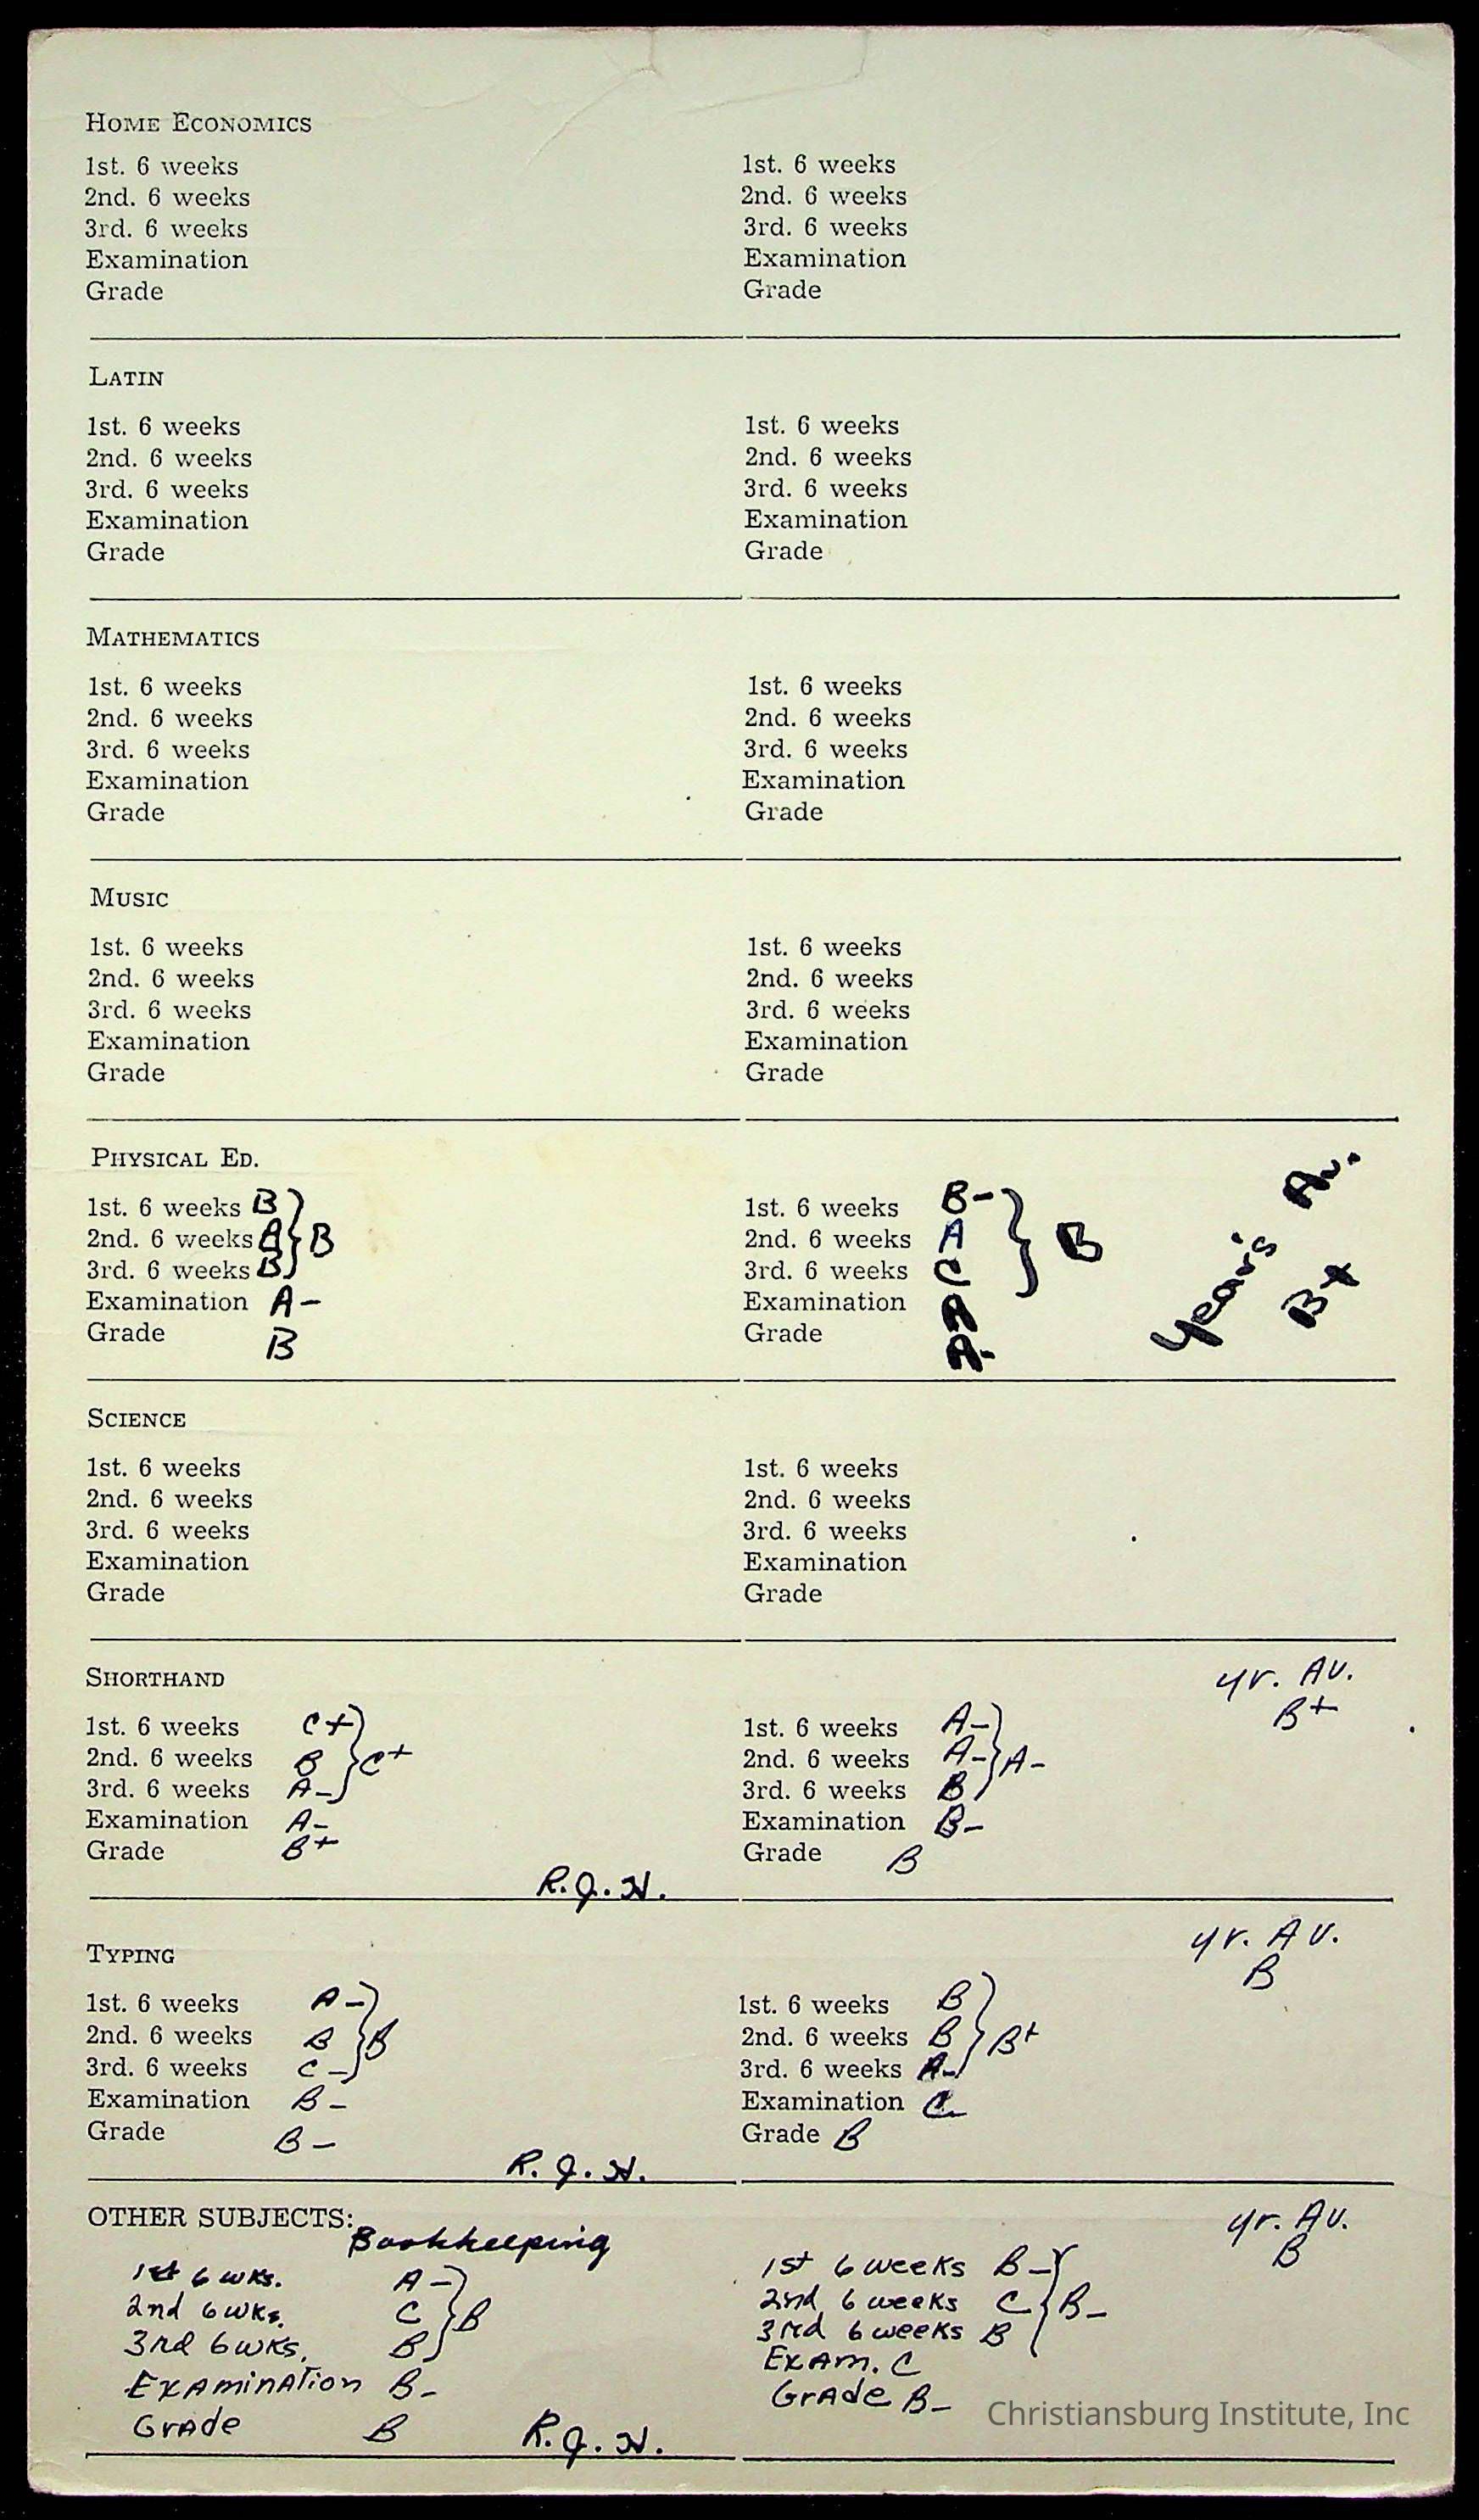 HOME ECONOMICS
1st. 6 weeks 1st. 6 weeks
2nd. 6 weeks 2nd. 6 weeks
3rd. 6 weeks 3rd. 6 weeks
Examination Examination
Grade Grade
LATIN
1st. 6 weeks 1st. 6 weeks
2nd. 6 weeks 2nd. 6 weeks
3rd. 6 weeks 3rd. 6 weeks
Examination Examination
Grade Grade
MATHEMATICS
1st. 6 weeks 1st. 6 weeks
2nd. 6 weeks 2nd. 6 weeks
3rd. 6 weeks 3rd. 6 weeks
Examination Examination
Grade Grade
MUSIC
1st. 6 weeks 1st. 6 weeks
2nd. 6 weeks 2nd. 6 weeks
3rd. 6 weeks 3rd. 6 weeks
Examination Examination
Grade Grade
PHYSICAL ED.
1st. 6 weeks B 1st. 6 weeks B-
2nd. 6 weeks A } B 2nd. 6 weeks A } B Year's Av.
3rd. 6 weeks B 3rd. 6 weeks C B+
Examination A- Examination A
Grade B Grade A-
SCIENCE
1st. 6 weeks 1st. 6 weeks
2nd. 6 weeks 2nd. 6 weeks
3rd. 6 weeks 3rd. 6 weeks
Examination Examination
Grade Grade
SHORTHAND yr. Av.
B+
1st. 6 weeks C+ 1st. 6 weeks A-
2nd. 6 weeks B } C+ 2nd. 6 weeks A- } A-
3rd. 6 weeks A- 3rd. 6 weeks B
Examination A- Examination B-
Grade B+ Grade B
R.J.H.
TYPING yr. Av.
B
1st. 6 weeks A- 1st. 6 weeks B
2nd. 6 weeks B } B 2nd. 6 weeks B } B+
3rd. 6 weeks C- 3rd. 6 weeks A-
Examination B- Examination C-
Grade B- Grade B
R.J.H.
OTHER SUBJECTS: Bookkeeping yr. Av.
B
1st 6 wks. A- 1st 6 weeks B-
2nd 6 wks. C } B 2nd 6 weeks C } B-
3rd 6 wks. B 3rd 6 weeks B
Examination B- Exam. C
Grade B Grade B-
R.J.H.
Christiansburg Institute, Inc